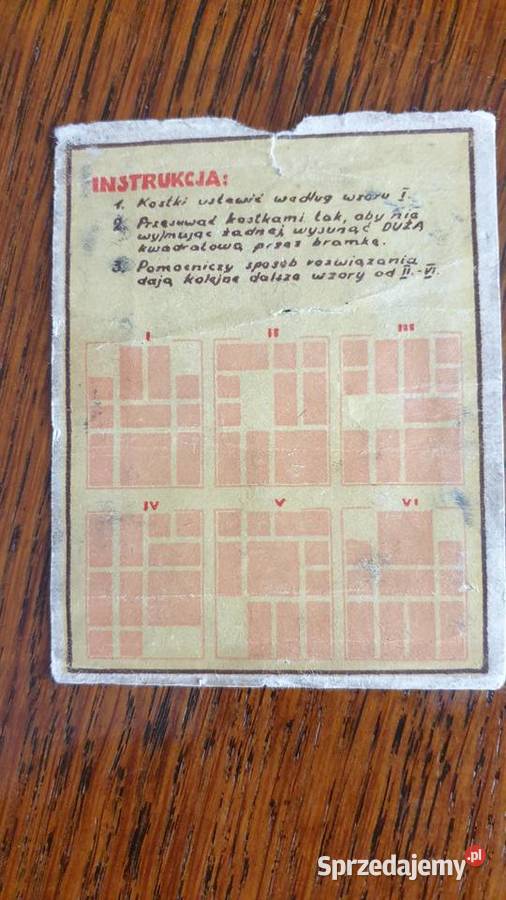 INSTRUKCJA:
1. Kostki ustawić według wzoru I.
2. Przesuwać kostkami tak, aby nie
wyjmując żadnej wysunąć DUŻĄ
kwadratową przez bramkę.
3. Pomocniczy sposób rozwiązania
dają kolejne dalsze wzory od II.-VI.
I II III
IV V VI
Sprzedajemy.pl